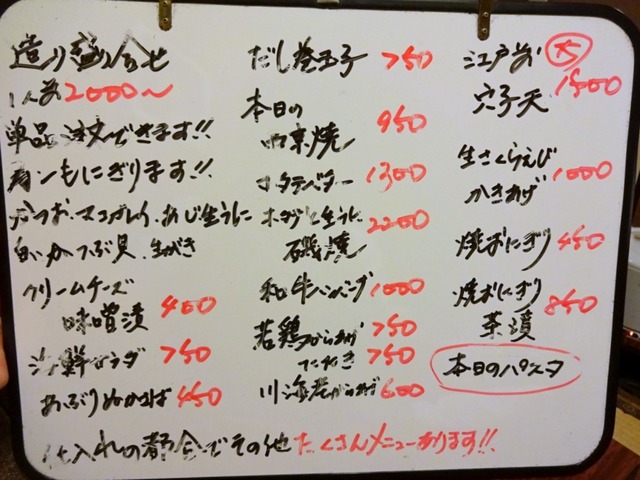 造り盛り合せ
1人前 2000〜
単品注文できます!!
カンもにぎります!!
かつお、マコガレイ、あじ、生うに
白いか、つぶ貝、生がき
クリームチーズ
味噌漬 400
海鮮サラダ 750
あぶりぬかさば 450
だし巻玉子 750
本日の
西京焼 950
ホタテバター 1300
ホタテと生うに
磯焼 2200
和牛ハンバーグ 1000
若鶏からあげ 750
750
川海老からあげ 600
江戸前 大
穴子天 1500
生さくらえび
かきあげ 1000
焼おにぎり 450
焼おにぎり
茶漬 850
本日のパスタ
仕入れの都合でその他たくさんメニューあります!!